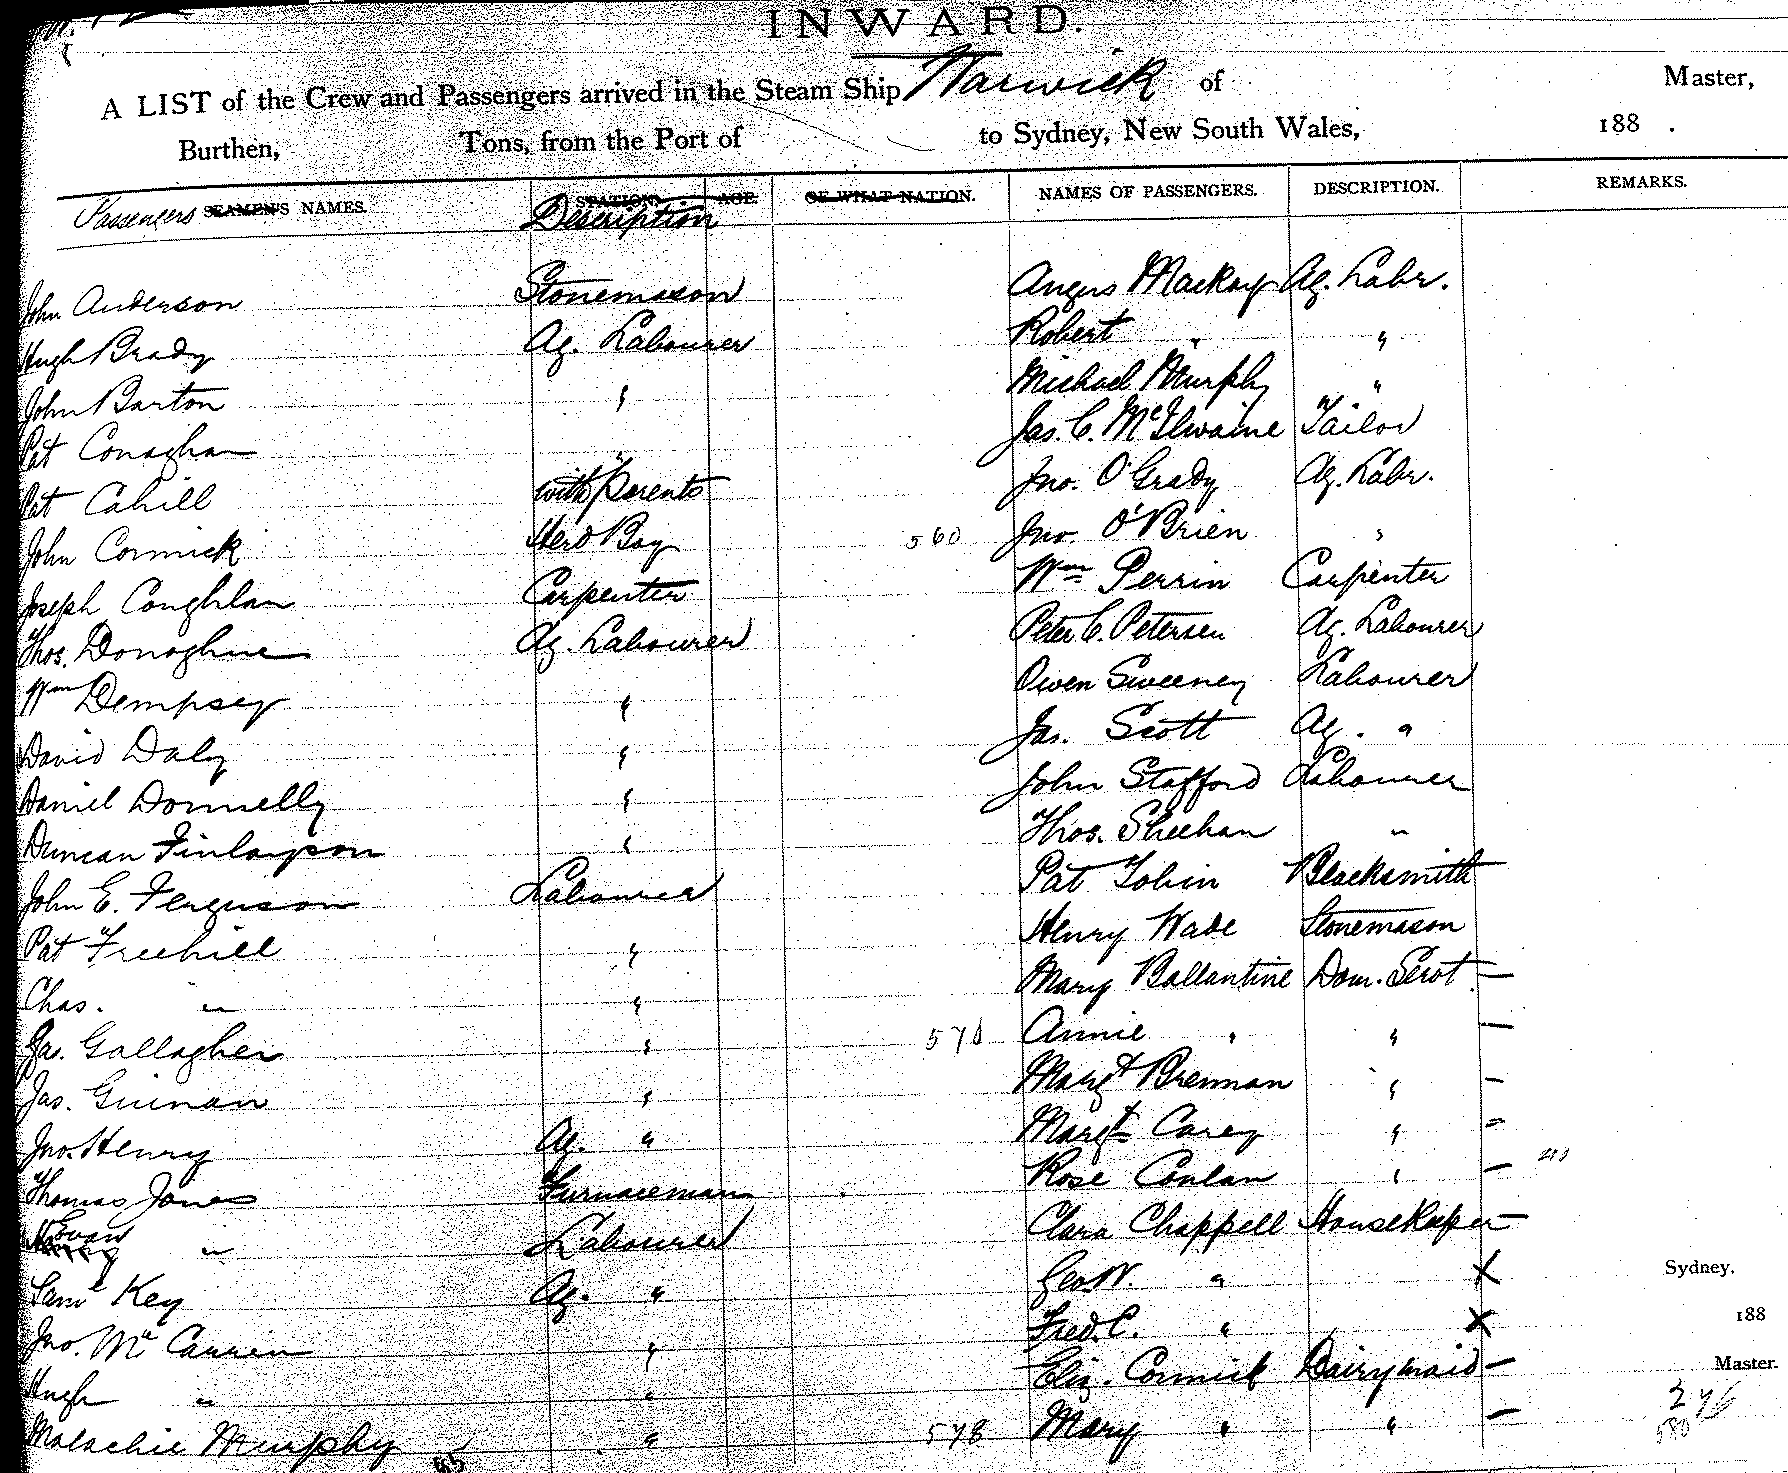 INWARD.
A LIST of the Crew and Passengers arrived in the Steam Ship Warwick of Master,
Burthen, Tons, from the Port of to Sydney, New South Wales, 188 .
Passengers SEAMEN'S NAMES. STATION. AGE. OF WHAT NATION. NAMES OF PASSENGERS. DESCRIPTION. REMARKS.
Description
John Anderson Stonemason Angus Mackay Ag. Labr.
Hugh Brady Ag. Labourer Robert " "
John Barton " Michael Murphy "
Pat Conaghan " Jas. C. McIlwaine Tailor
Pat Cahill with parents Jno. O'Grady Ag. Labr.
John Cormick Herd Boy 560 Jno. O'Brien "
Joseph Coughlan Carpenter Wm Perrin Carpenter
Thos. Donoghue Ag. Labourer Peter C. Petersen Ag. Labourer
Wm Dempsey " Owen Sweeney Labourer
David Daly " Jas. Scott Ag. "
Daniel Donnelly " John Stafford Labourer
Duncan Finlayson " Thos. Sheehan "
John E. Ferguson Labourer Pat Tobin Blacksmith
Pat Freehill " Henry Wade Stonemason
Chas. " " Mary Ballantine Dom. Servt. —
Jas. Gallagher " 570 Annie " " —
Jas. Guinan " Margt Brennan " —
Jno. Henry Ag. " Margt Carey " —
Thomas Jones Furnaceman Rose Conlan " — 210
Evan " Labourer Clara Chappell Housekeeper —
Saml Key Ag. " Geo. W. " X Sydney.
Jno. Mc Carren " Fred. C. " X 188
Hugh " " Eliz. Cormick Dairymaid — Master.
Malachie Murphy " 578 Mary " " — 276
580